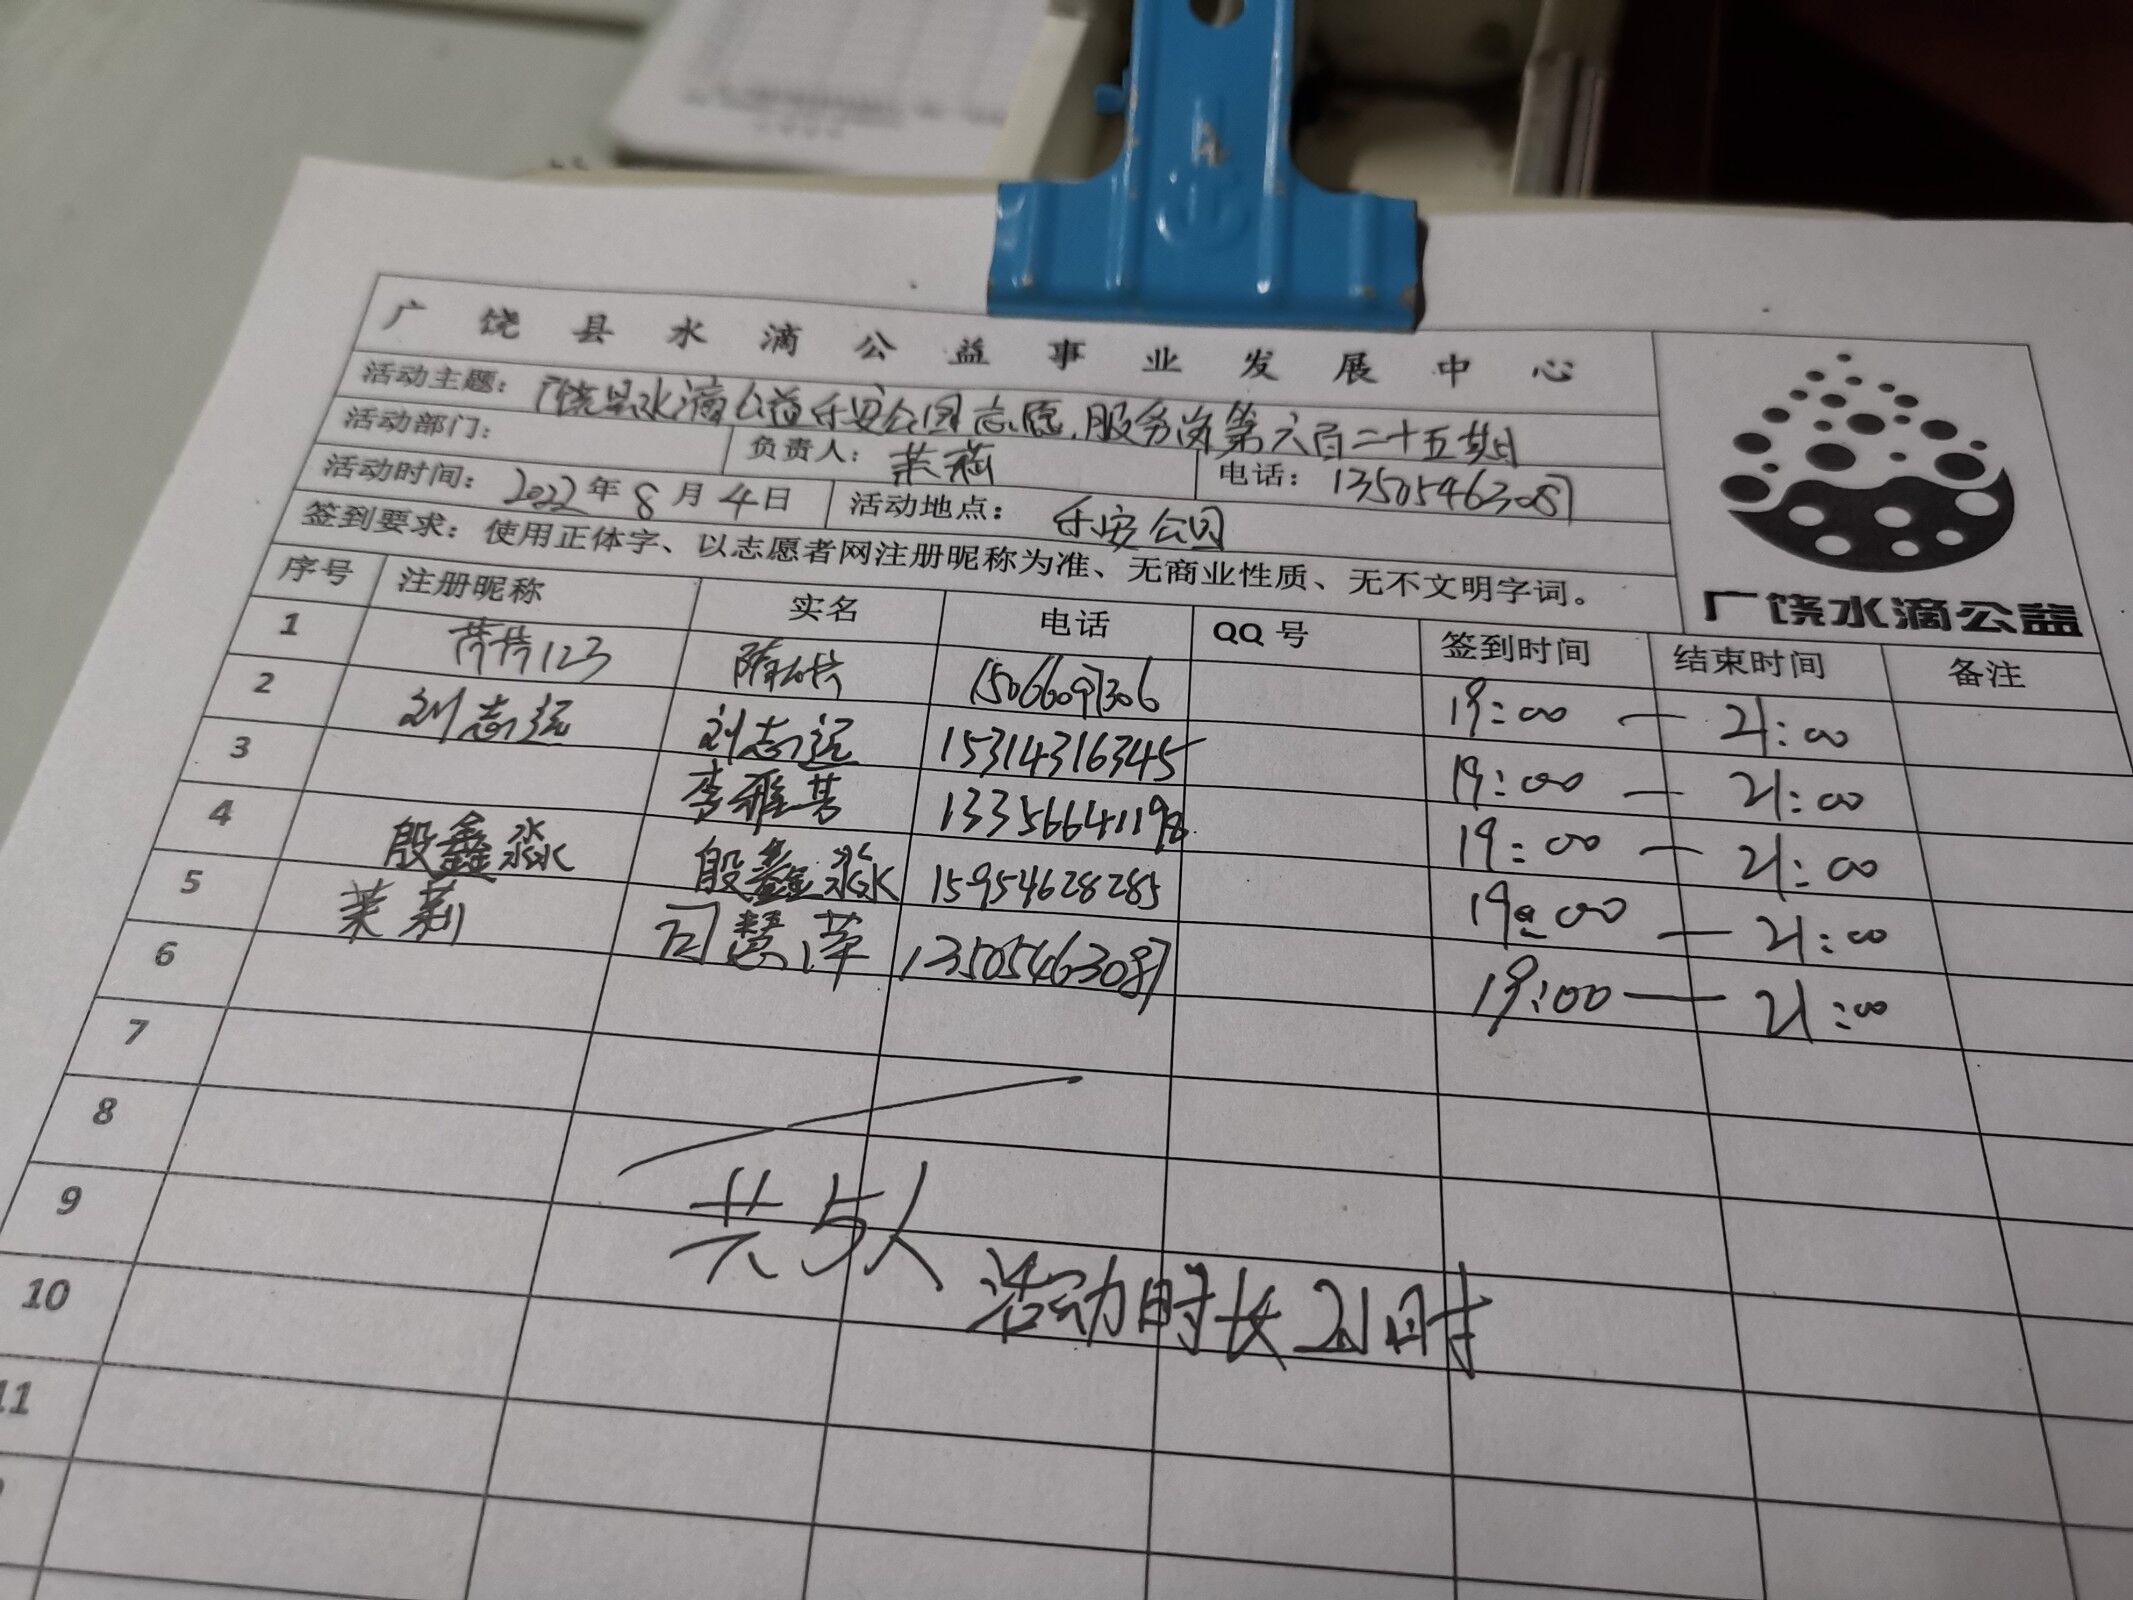 广饶县水滴公益事业发展中心
活动主题：广饶县水滴公益乐安公园志愿服务岗第六百二十五期
活动部门： 负责人：茉莉 电话：13505463087
活动时间：2022年8月4日 活动地点：乐安公园
签到要求：使用正体字、以志愿者网注册昵称为准、无商业性质、无不文明字词。
广饶水滴公益
序号 注册昵称 实名 电话 QQ号 签到时间 结束时间 备注
1 芳芳123 15066097306 19:00 — 21:00
2 刘志远 刘志远 15314316345 19:00 — 21:00
3 李雅芳 13356641198 19:00 — 21:00
4 殷鑫淼 殷鑫淼 15954628285 19:00 — 21:00
5 茉莉 司慧萍 13505463087 19:00 — 21:00
6
7
8
共5人
9
活动时长2小时
10
11